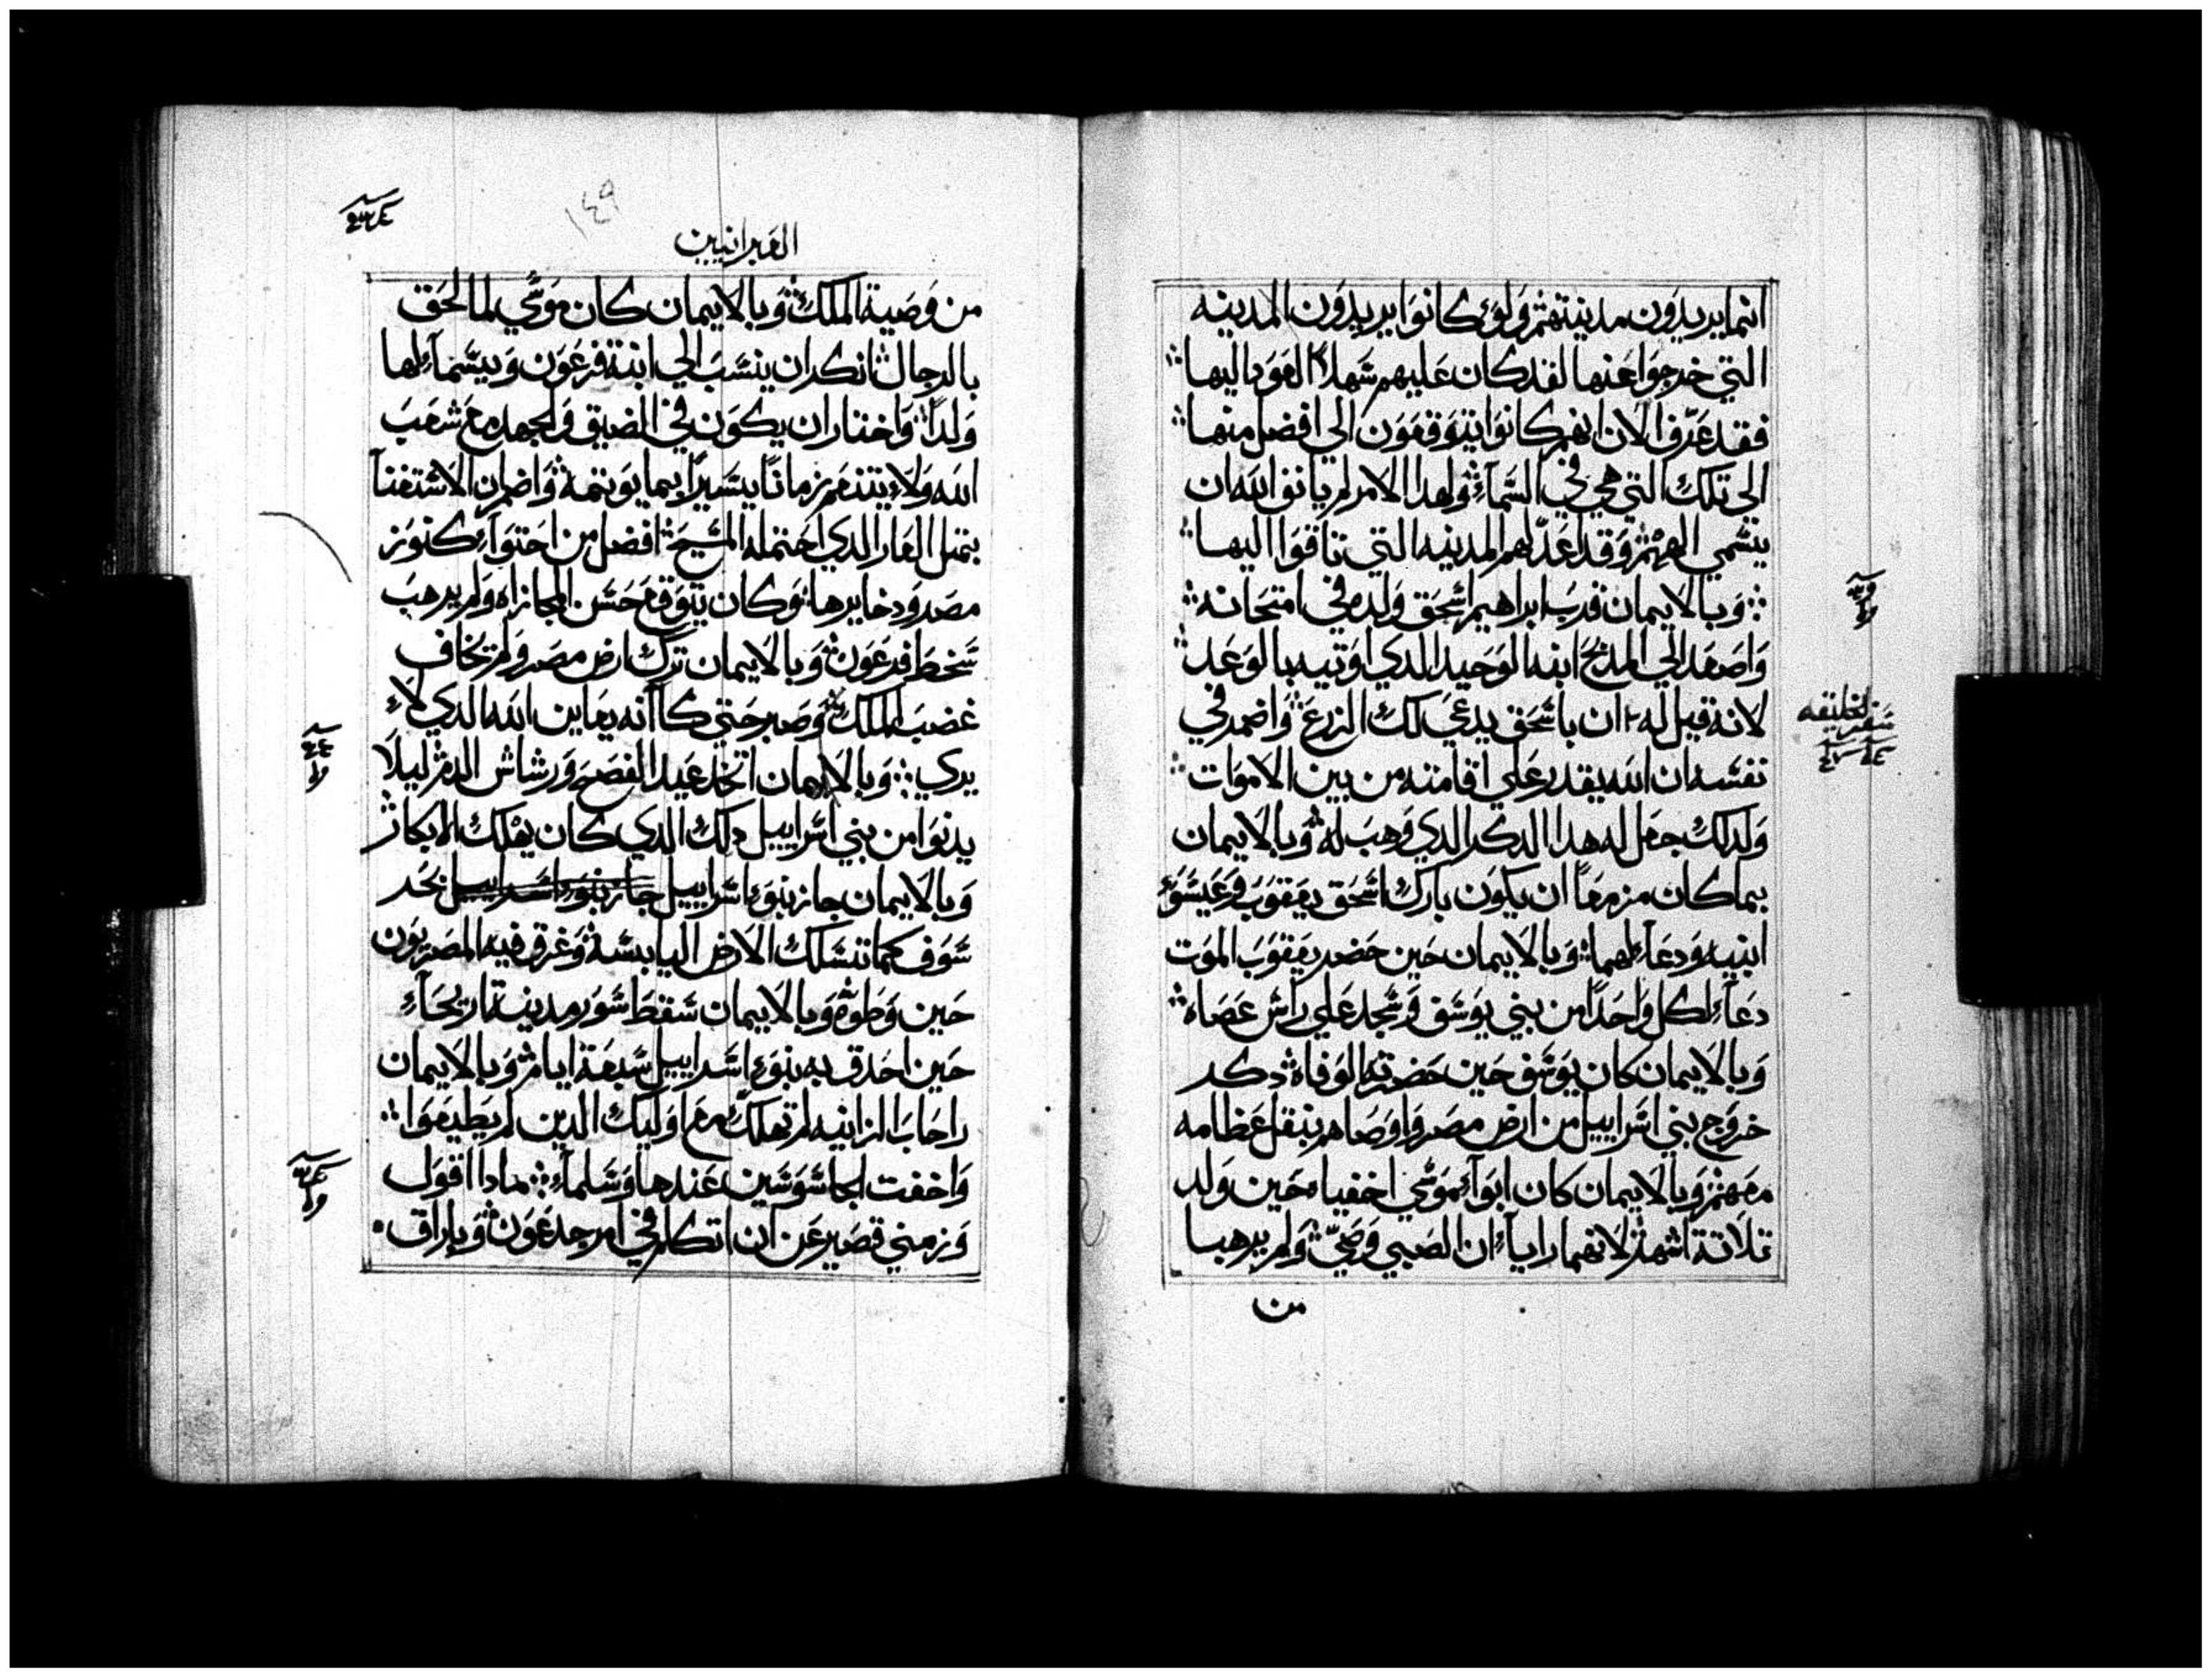 انما يريدون مدينتهم ولو كانوا يريدون المدينه
التي خرجوا عنها لقد كان عليهم سهلا العودا اليها
فقد عرف الان انهم كانوا يتوقعون الي افضل منها
الي تلك التي هي في السمآء ولهدا الامر لم يانف الله ان
يتسمي الههم وقد اعد لهم المدينه التي تاقوا اليها
وبالايمان قرب ابراهيم اسحق ولده في امتحانه
واصعد الي المدبح ابنه الوحيد الدي اوتيه بالوعد
لانه قيل له ان باسحق يدعي لك الزرع واضمر في
نفسه ان الله يقدر علي اقامته من بين الاموات
ولدلك جعل له هدا الدكر الدي وهب له وبالايمان
بما كان مزمعا ان يكون بارك اسحق يعقوب وعيسو
ابنيه ودعآء لهما وبالايمان حين حضر يعقوب الموت
دعآء لكل واحدا من بني يوسف وسجد علي راس عصاه
وبالايمان كان يوسف حين حضرته الوفاه دكر
خروج بني اسراييل من ارض مصر واوصاهم بنقل عظامه
معهم وبالايمان كان ابوآء موسي اخفياه حين ولد
تلاتة اشهر لانهما راياء ان الصبي وضي ولم يرهبا
من
سفر الخليقه
العبرانيين
١٤٩
من وصية الملك وبالايمان كان موسي لما الحق
بالرجال انكر ان ينسب الي ابنة فرعون ويسمآء لها
ولدا واختار ان يكون في الضيق والجهد مع شعب
الله ولاء يتنعم زمانا يسيرا بما يوتمه واضمر ان الاستغنآ
بتمل العار الدي احتمله المسيح افضل من احتوآء كنوز
مصر ودخايرها وكان يتوقع حسن المجازاه ولم يرهب
سخط فرعون وبالايمان ترك ارض مصر ولم يخاف
غضب الملك وصبر حتي كاانه يعاين الله الدي لاء
يري وبالايمان اتخد عيد الفصح ورشاش الدم ليلا
يدنوا من بني اسراييل دلك الدي كان يهلك الابكار
وبالايمان جاز بنوء اسراييل جاز بنوء اسراييل بحر
سوف كما تسلك الارض اليابسة وغرق فيه المصريون
حين وطوه وبالايمان سقط سور مدينة اريحآء
حين احدق به بنوء اسراييل سبعة ايام وبالايمان
راحاب الزانيه لم تهلك مع اوليك الدين لم يطيعوا
واخفت الجاسوسين عندها وسلمآء مادا اقول
وزمني قصير عن ان اتكلم في امر جدعون وباراق